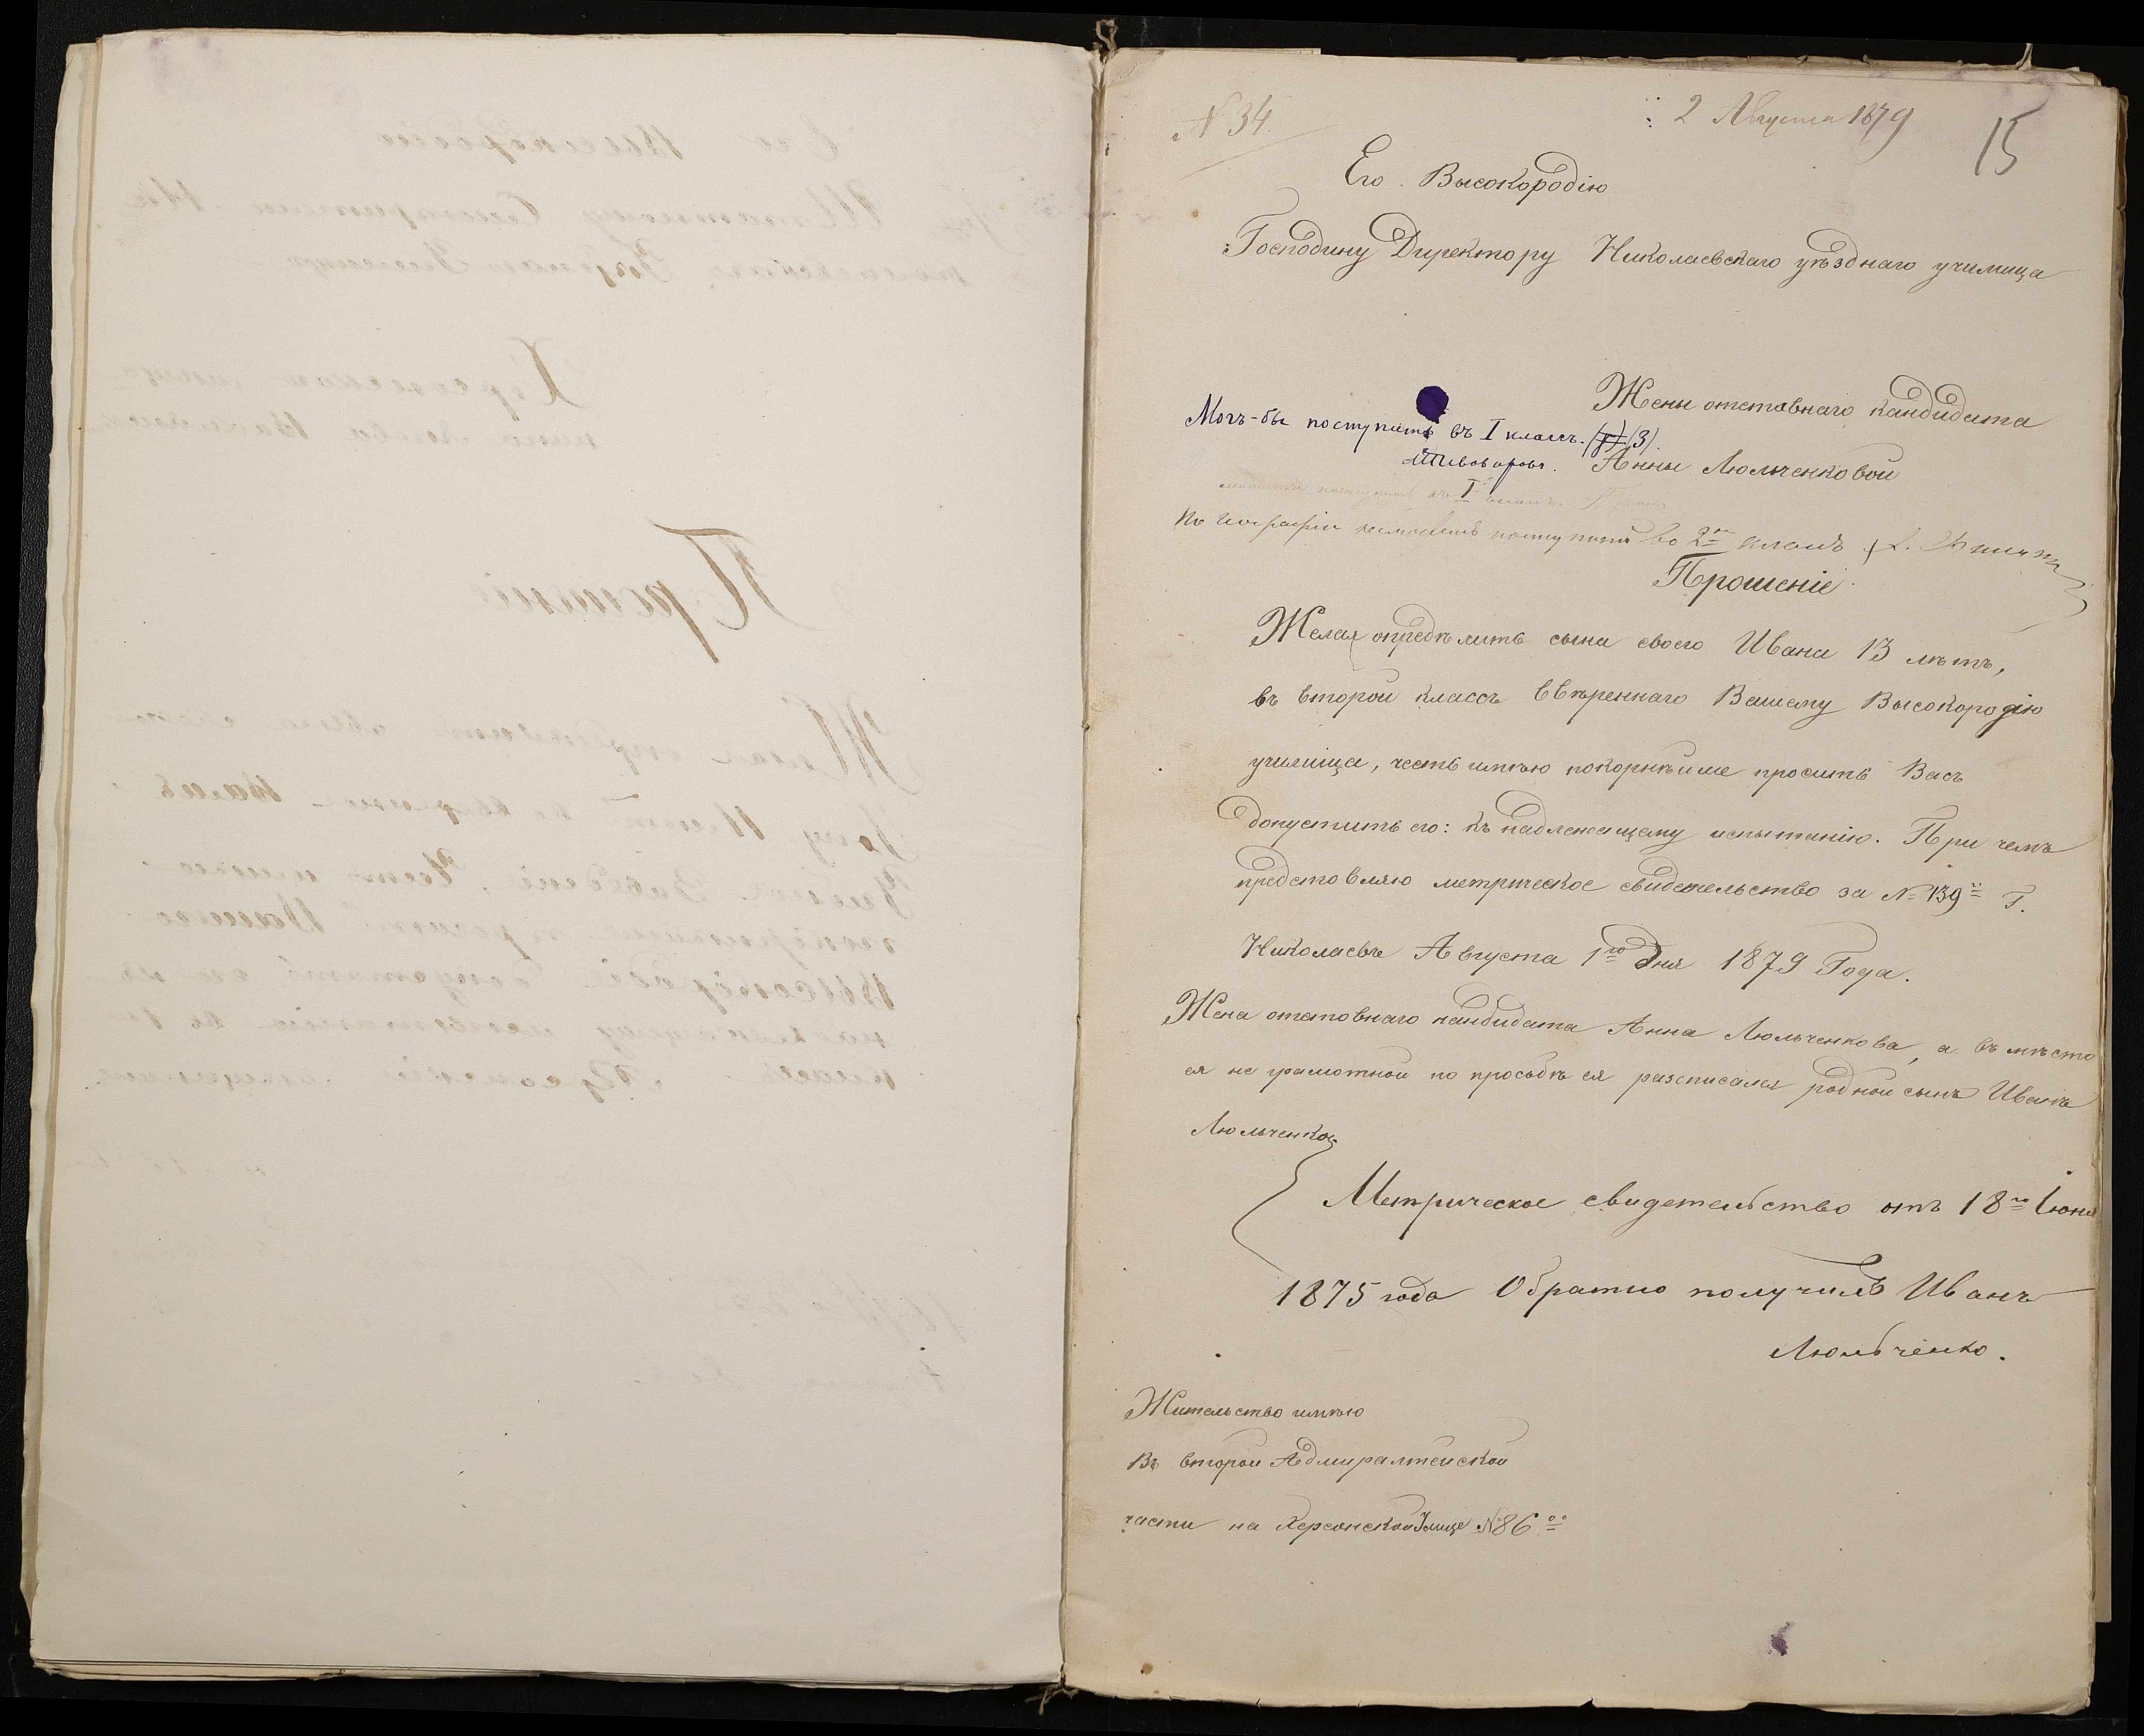 N 34
2 Августа 1879
15
Его Высокородію
Господину Директору Николаевскаго уѣзднаго училища
Жены отставнаго кандидата
Могъ-бы поступить въ I классъ. (3).
Пивоваровъ.
Анны Люльченковой
поступить въ I
По географіи неможетъ поступить во 2й классъ
Прошеніе
Желая опредѣлить сына своего Ивана 13 лѣтъ,
въ второй классъ ввѣреннаго Вашему Высокородію
училища, честь имѣю покорнѣйше просить Васъ
допустить его: къ надлежащему испытанію. При чемъ
представляю метрическое свидетельство за № 139 Г.
Николаевъ Августа 1го дня 1879 Года.
Жена отставнаго кандидата Анна Люльченкова, а въ мѣсто
ея не грамотной по просьбѣ ея расписался родной сынъ Иванъ
Люльченко
Метрическое свидетельство отъ 18го Іюня
1875 года Обратно получилъ Иванъ
Люльченко.
Жительство имѣю
Въ второй Адмиралтейской
части на Херсонской Улице № 86